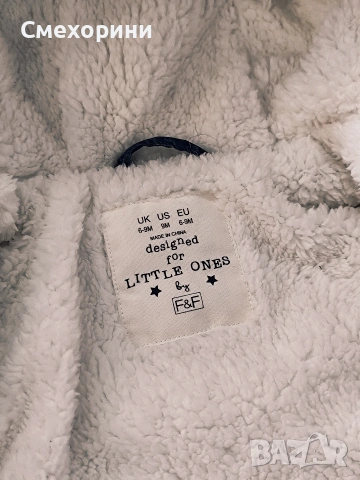 Смехорини
UK US EU
6-9M 9M 6-9M
MADE IN CHINA
designed
for
LITTLE ONES
by
F&F
BAZAR